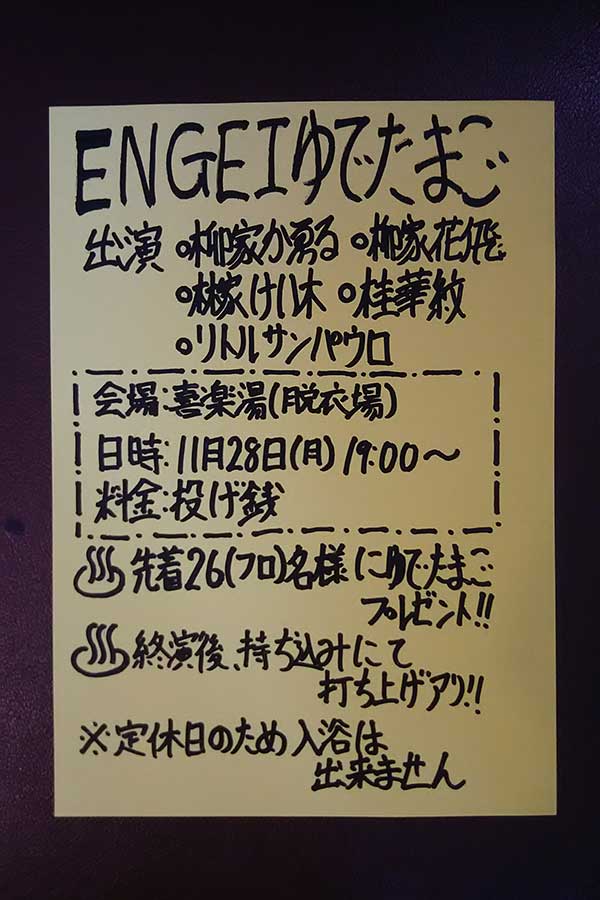 ENGEIゆでたまご
出演 ○柳家かゑる ○柳家花飛
○林家けい木 ○桂華紋
○リトルサンパウロ
会場:喜楽湯(脱衣場)
日時:11月28日(月) 19:00〜
料金:投げ銭
♨先着26(フロ)名様にゆでたまご
プレゼント!!
♨終演後、持ち込みにて
打ち上げアリ!!
※定休日のため入浴は
出来ません